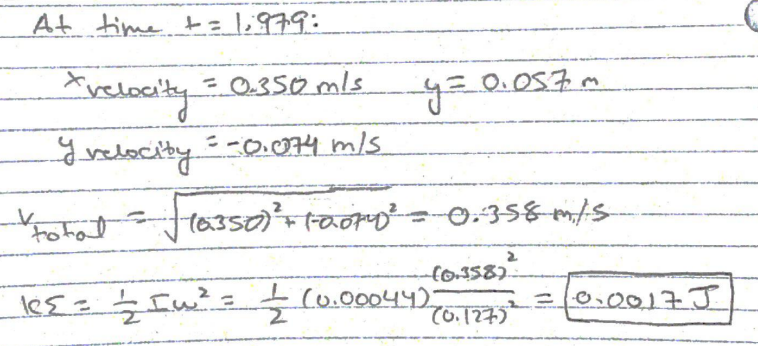 At time t = 1.979:
x velocity = 0.350 m/s y = 0.057 m
y velocity = -0.074 m/s
v total = √((0.350)² + (-0.074)²) = 0.358 m/s
KE = 1/2 Iω² = 1/2 (0.00044) (0.358)²/(0.127)² = 0.0017 J